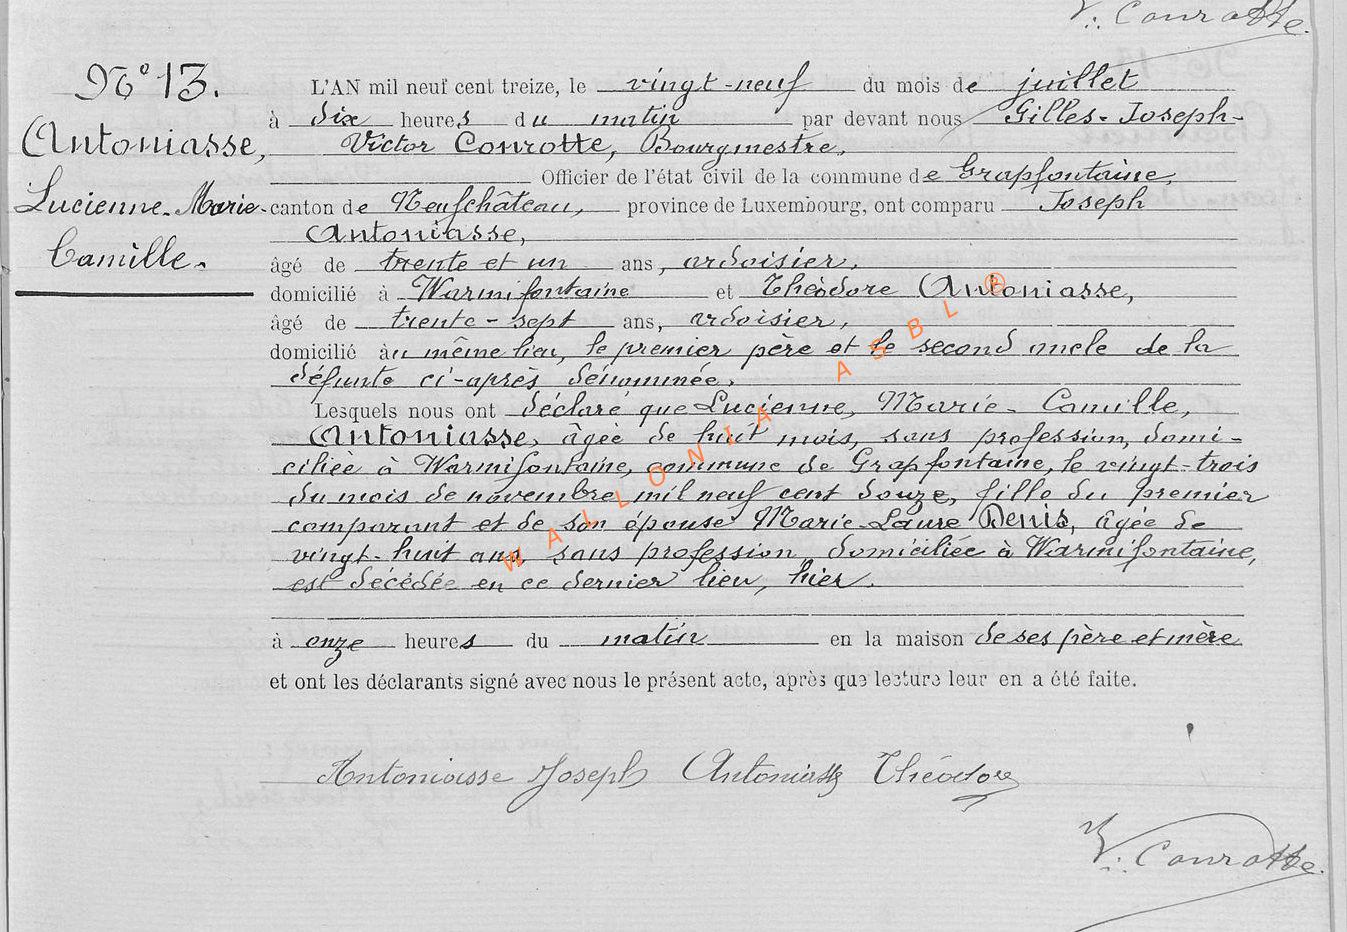 V. Conrotte.
N° 13.
Antoniasse,
Lucienne-Marie-
Camille.
L'AN mil neuf cent treize, le vingt-neuf du mois de juillet
à dix heures du matin par devant nous Gilles-Joseph-
Victor Conrotte, Bourgmestre,
Officier de l'état civil de la commune de Grapfontaine,
canton de Neufchâteau, province de Luxembourg, ont comparu Joseph
Antoniasse,
âgé de trente et un ans, ardoisier,
domicilié à Warmifontaine et Théodore Antoniasse,
âgé de trente-sept ans, ardoisier,
domicilié au même lieu, le premier père et le second oncle de la
défunte ci-après dénommée.
Lesquels nous ont déclaré que Lucienne, Marie-Camille,
Antoniasse, âgée de huit mois, sans profession, domi-
ciliée à Warmifontaine, commune de Grapfontaine, le vingt-trois
du mois de novembre mil neuf cent douze, fille du premier
comparant et de son épouse Marie-Laure Denis, âgée de
vingt-huit ans sans profession, domiciliée à Warmifontaine,
est décédée en ce dernier lieu, hier.
à onze heures du matin en la maison de ses père et mère
et ont les déclarants signé avec nous le présent acte, après que lecture leur en a été faite.
Antoniasse Joseph Antoniasse Théodore
V. Conrotte.
WALLONIA ASBL ®